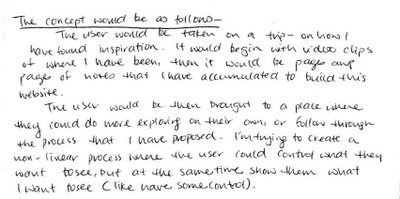 The concept would be as follows-
The user would be taken on a trip- on how I
have found inspiration. It would begin with video clips
of where I have been, then it would be pages and
pages of notes that I have accumulated to build this
website.
The user would be then brought to a place where
they could do more exploring on their own, or follow through
the process that I have proposed. I'm trying to create a
non-linear process where the user could control what they
want to see, but at the same time show them what
I want to see (like have some control).